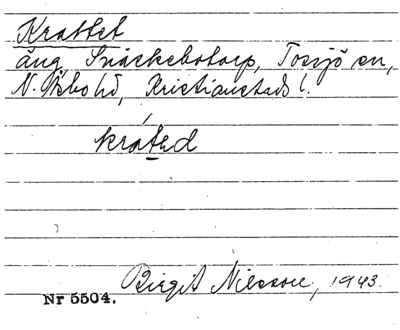 Krattet
äng, Snäckebotorp, Tossjö sn,
N. Åsbo hd, Kristianstads l.
kratəd
Birgit Nilsson, 1943.
Nr 5504.